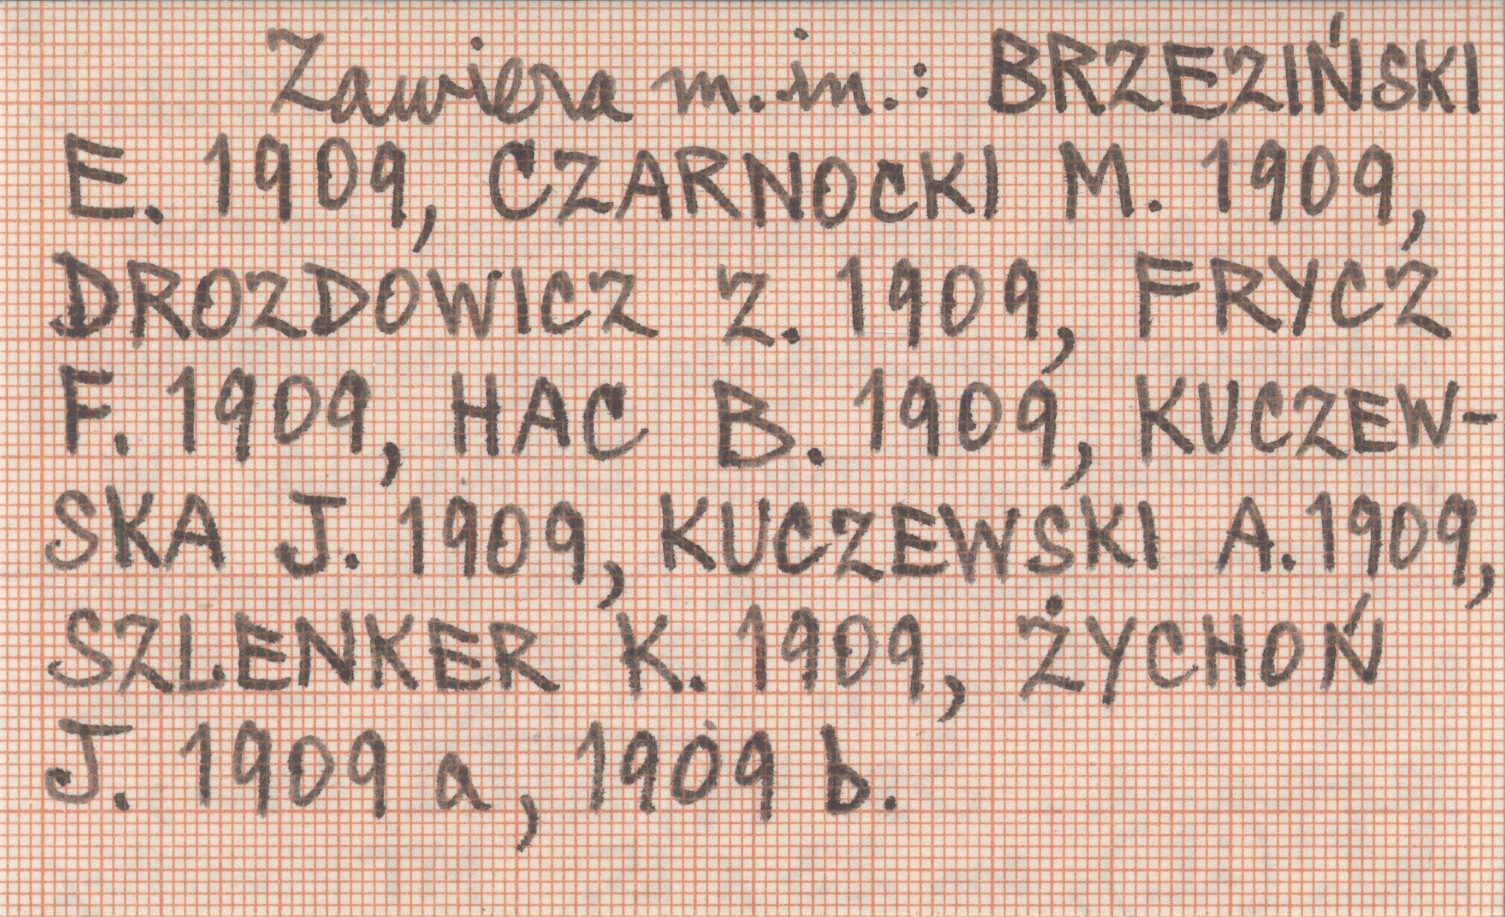 Zawiera m.in.: BRZEZIŃSKI
E. 1909, CZARNOCKI M. 1909,
DROZDOWICZ Z. 1909, FRYCZ
F. 1909, HAC B. 1909, KUCZEW-
SKA J. 1909, KUCZEWSKI A. 1909,
SZLENKER K. 1909, ŻYCHOŃ
J. 1909 a, 1909 b.